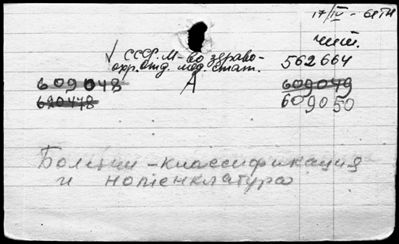 17/IV - 64
чит.
√ СССР. М-во здраво-
охр. Отд. мед. стат.
562664
609048
А
609049
620478
609050
Болезни - классификация
и номенклатура